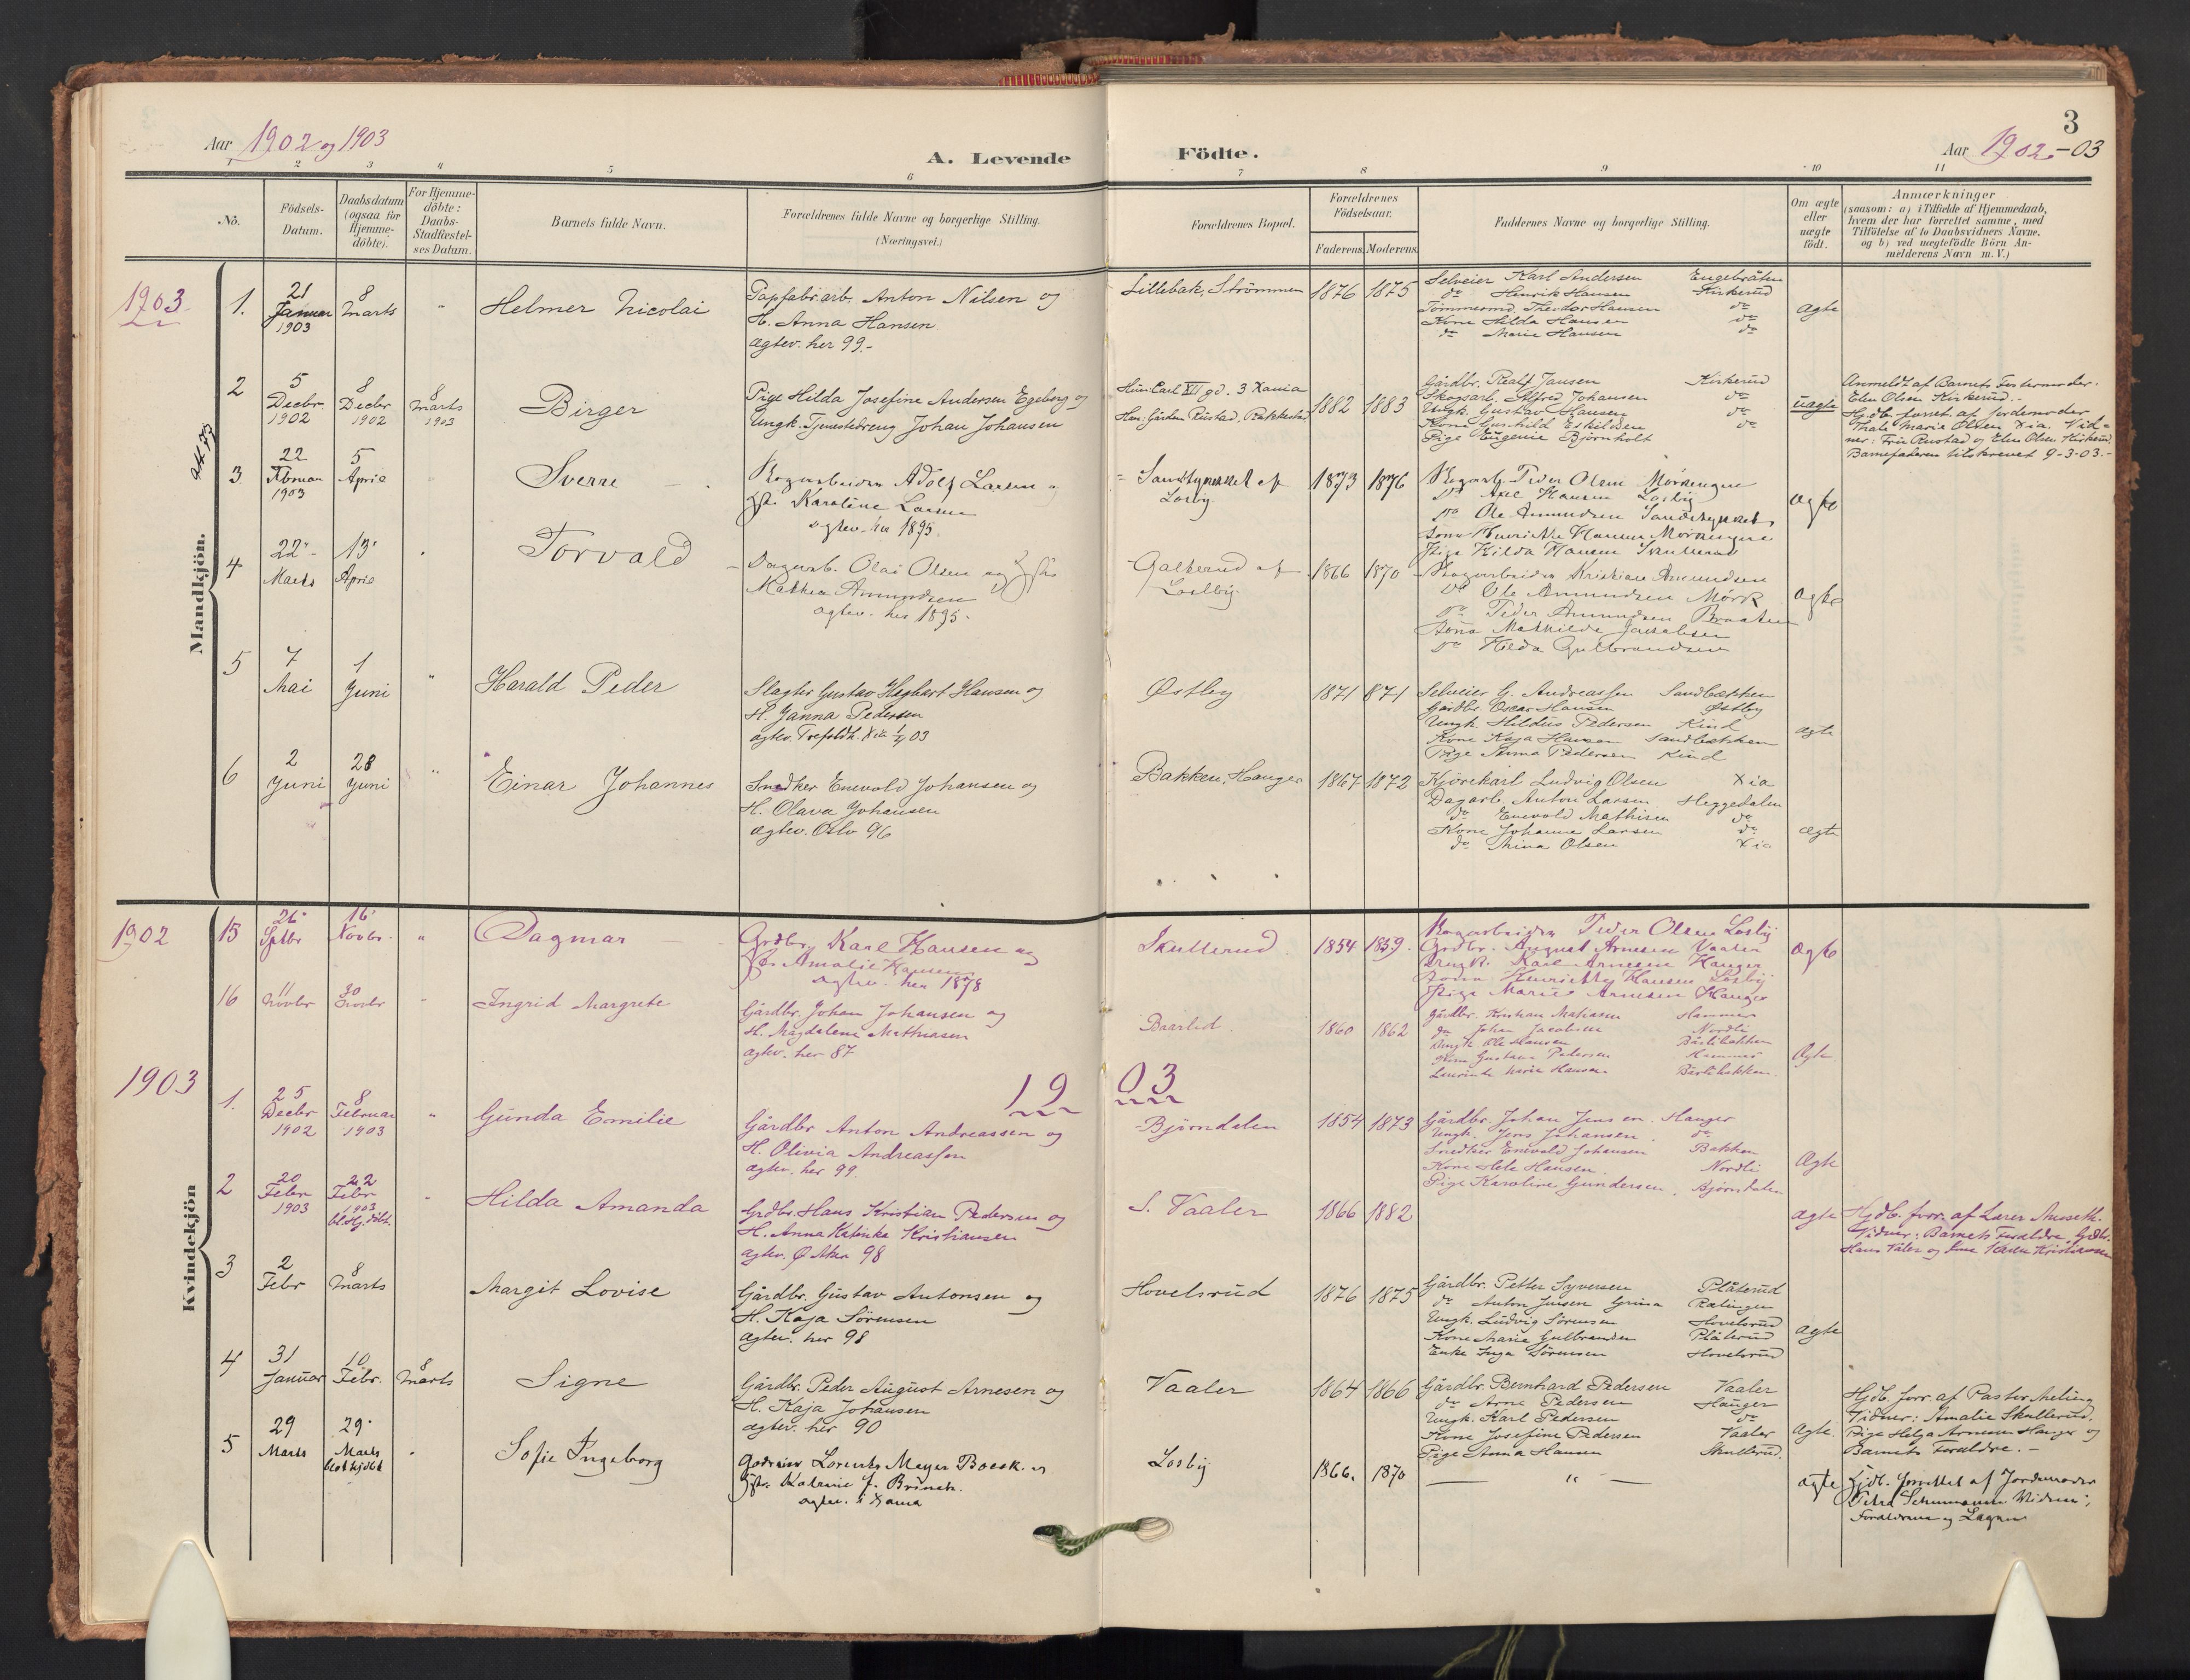 3
Aar 1902 og 1903
A. Levende Födte.
Aar 1902-03
1 2 3 4 5 6 7 8 9 10 11
No.
Födsels-Datum.
Daabsdatum (ogsaa for Hjemme-döbte).
For Hjemme-döbte: Daabs-Stadfæstel-ses Datum.
Barnets fulde Navn.
Forældrenes fulde Navne og borgerlige Stilling.
(Næringsvei.)
Forældrenes Bopæl.
Forældrenes Födselsaar.
Faderens. Moderens.
Faddernes Navne og borgerlige Stilling.
Om ægte eller uægte födt.
Anmærkninger
(saasom: a) i Tilfælde af Hjemmedaab,
hvem der har forrettet samme, med
Tilföielse af to Daabsvidners Navne,
og b) ved uægtefödte Börn An-
melderens Navn m. V.)
Mandkjön.
1903
1. 21 Januar 1903 8 Marts " Helmer Nicolai
Papfabr.arb. Anton Nilsen og
H. Anna Hansen
ægtev. her 99.-
Lillebak, Strömmen 1876 1875
Selveier Karl Andersen Engebråten
do Henrik Hansen Kirkerud
Tömmermd. Theodor Hansen do
Kone Hilda Hansen do
do Marie Hansen do
ægte
2 5 Decbr. 1902 8 Decbr 1902 8 Marts 1903 Birger
Pige Hilda Josefine Andersen Egeberg og
Ungk. Tjenestedreng Johan Johansen
Hun: Carl XII gd. 3 Xania
Han: Gården Rustad, Bakkestad
1882 1883
Gårdbr. Realf Jansen Kirkerud
Skogsarb. Alfred Johansen do
Ungk. Gustav Hansen do
Kone Gunhild Eskildsen do
Pige Eugenie Bjørnholt
uægte
Anmeldt af Barnets Fostermoder
Elen Olsen Kirkerud.-
Hjdb. forret af Jordemoder
Thale Marie Olsen Xia. Vid-
ner: Fru Rustad og Elen Olsen Kirkerud.
Barnefaderen tilskrevet 9-3-03.-
3. 22 Februar 1903 5 April Sverre
Skogarbeider Adolf Larsen og
Hst. Karoline Larsen
ægtev. her 1895.
Sandstykket af
Losby
1873 1876
Skogarb. Peder Olsen Mörkengen
do Axel Hansen Losby
do Ole Amundsen Sandstykket
Kona Henriette Hansen Mörkengen
Pige Hilda Hansen Skullerud
ægte
4 22 Marts 13 April Torvald
Dagarb. Olai Olsen og Hst.
Mathea Amundsen
ægtev. her 1895.
Galterud af
Losby
1866 1870
Skogarbeider Kristian Amundsen
do Ole Amundsen Mörk
do Peder Amundsen Braaten
Kona Mathilde Jacobsen
do Hilda Gulbrandsen
ægte
5 7 Mai 1 Juni " Harald Peder
Slagter Gustav Hagbart Hansen og
H. Janna Pedersen
ægtev. Trefoldh. Xia 03
Østby 1871 871
Selveier G. Andreassen Sandbækken
Gårdbr. Oscar Hansen Østby
Ungk. Hildus Pedersen Kind
Kone Kaja Hansen Sandbækken
Pige Anna Pedersen Kind
ægte
6 2 Juni 28 Juni " Einar Johannes
Snedker Enevold Johansen og
H. Olava Johansen
ægtev. Oslo 96
Bakken, Hauger 1867 1872
Kjörekarl Ludvig Olsen Xia
Dagarb. Anton Larsen Heggedalen
do Enevold Mathisen do
Kone Johanne Larsen do
do Mina Olsen Xia
ægte
Kvindekjön
1902
15 26 Sptbr 16 Novbr. " Dagmar
Grdbr. Karl Hansen og
Hst. Amalie Hansen
ægtev. her 1878
Skullerud 1854 1859.
Skogarbeider Peder Olsen Losby
Grdbr. August Arnesen Vaaler
Ungk. Karl Arnesen Hauger
Kona Henriette Hansen Losby
Pige Marie Arnesen Hauger
ægte
16 11 Novbr 30 Novbr Ingrid Margrete
Gårdbr. Johan Johansen og
H. Magdalene Mathiasen
ægtev. her 87
Baarlid 1860 1862
Gårdbr. Kristian Mathiasen Hammer
do Johan Jacobsen Nordli
Ungk. Ole Hansen Bårlibakken
Kone Gustava Pedersen Hammer
Laurentze Marie Hansen Bårlibakken.
Ægte
1903
1903
1. 25 Decbr 1902 8 Februar 1903 " Gunda Emilie
Gårdbr Anton Andreassen og
H. Olivia Andreassen
ægtev. her 99.
Bjørndalen 1854 1873
Gårdbr. Johan Jensen. Hauger
Ungk. Jens Johansen. do
Snedker Enevold Johansen Bakken
Kone Hele Hansen. Nordli
Pige Karoline Gundersen, Bjørndalen
Ægte
2 20 Febr 1903 22 Febr 1903 bl. Hj. döbt. Hilda Amanda
Grdbr. Hans Kristian Pedersen og
H. Anna Katinka Kristiansen
ægtev. Ø Aker 98
S. Vaaler 1866 1882
ægte
Hjdb. forr. af Lærer Auseth.
Vidner: Barnets Forældre, Gdbr.
Hans Våler og Karen Kristiansen
3 2 Febr 8 Marts Margit Lovise
Gårdbr. Gustav Antonsen og
H. Kaja Sörensen
ægtev. her 98
Hovelsrud 1876 1875
Gårdbr. Petter Syversen Plåterud
do Anton Jensen Grina Rælingen
Ungk. Ludvig Sörensen Hovelsrud
Kone Marie Gulbrandsen Plåterud
Enke Inga Sörensen Hovelsrud
ægte
4 31 Januar 10 Febr. 8 Marts Signe
Gårdbr. Peder August Arnesen og
H. Kaja Johansen
ægtev. her 90
Vaaler 1864 1866
Gårdbr. Bernhard Pedersen Vaaler
do Arne Pedersen Hauger
Ungk. Karl Pedersen do
Kone Josefine Pedersen Vaaler
Pige Anna Hansen Skullerud.
Ægte.
Hjdb. forr. af Pastor Meling
Vidner: Amalie Skullerud,
Pige Helga Arnesen Hauger og
Barnets Forældre.-
5 29 Marts 29 Marts blot hjdbt Sofie Ingeborg
Godseier Lorentz Meyer Boeck og
Hst. Katrine f. Brinch.
ægtev. i Xania
Losby 1866. 1870
— " —
ægte
Hjdb. forrettet af Jordemoder
Petra Schumann Vidner:
Forældrene og Lægen